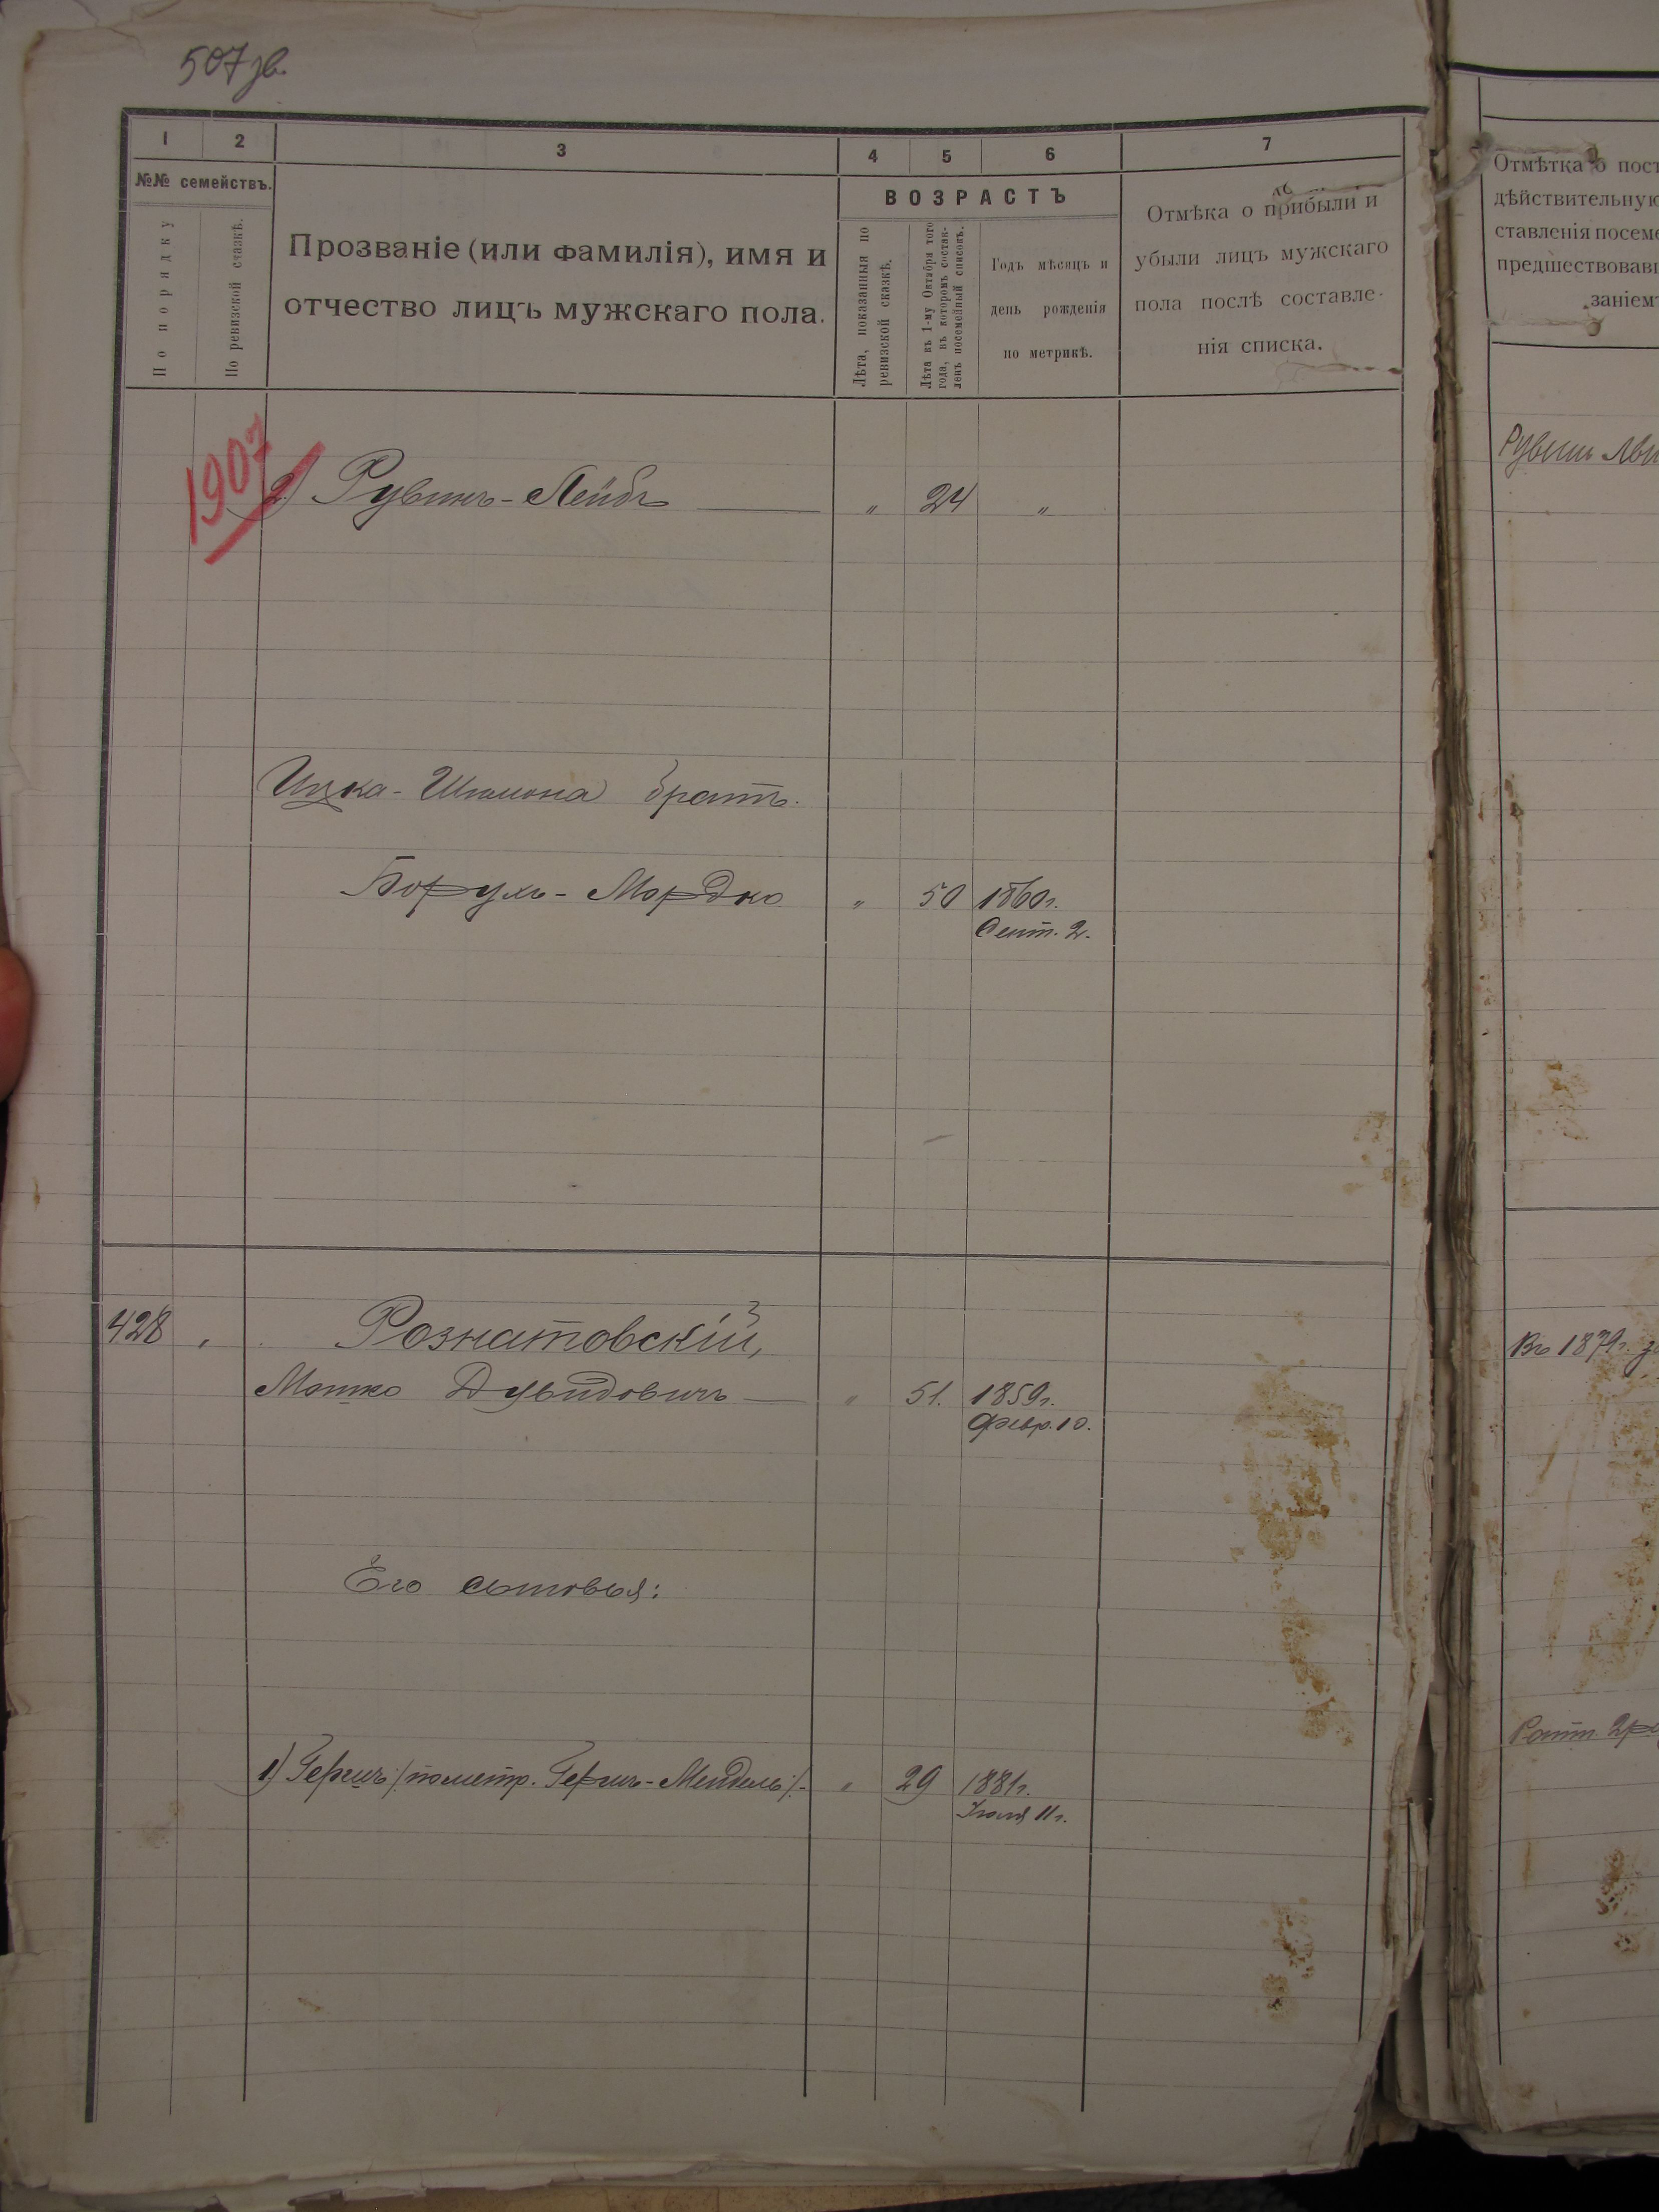 507 зв.
1 2 3 4 5 6 7
№№ семействъ.
По порядку
По ревизской сказкѣ.
Прозваніе (или фамилія), имя и
отчество лицъ мужскаго пола.
ВОЗРАСТЪ
Лѣта, показанныя по
ревизской сказкѣ.
Лѣта къ 1-му Октября того
года, въ которомъ состав-
ленъ посемейный списокъ.
Годъ мѣсяцъ и
день рожденія
по метрикѣ.
Отмѣка о прибыли и
убыли лицъ мужскаго
пола послѣ составле-
нія списка.
Отмѣтка о пост
дѣйствительную
ставленія посеме
предшествовавш
заніемъ
1907
2) Рувинъ-Лейбъ „ 24 „
Рувинъ
Ицка-Шимона братъ.
Борухъ-Мордко „ 50 1860 г.
Сент. 2.
428 Рознатовскій,
Въ 1879 г.
Мошко Дувидовичъ — „ 51. 1859 г.
Февр. 10.
Его сыновья:
1) Гершъ /: по метр. Гершъ-Мендель :/- „ 29 1881 г.
Іюля 11 г.